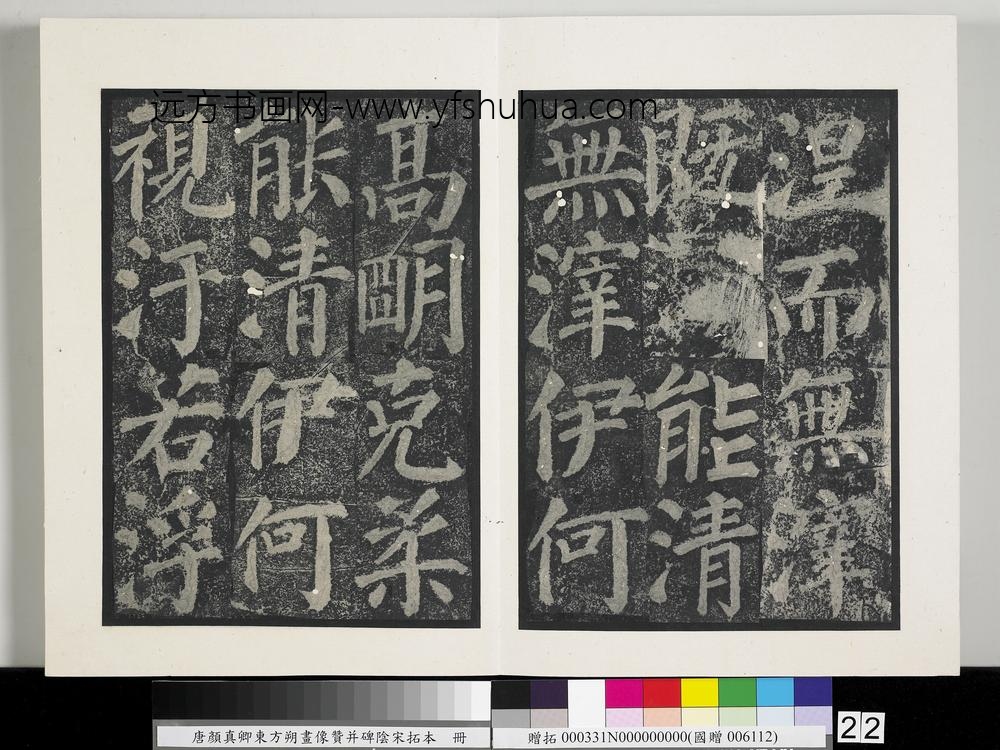 远方书画网-www.yfshuhua.com
涅而無滓
既
能清
無滓伊何
高明克柔
能清伊何
視汙若浮
唐顏真卿東方朔畫像贊并碑陰宋拓本 冊
贈拓 000331N000000000(國贈 006112)
22